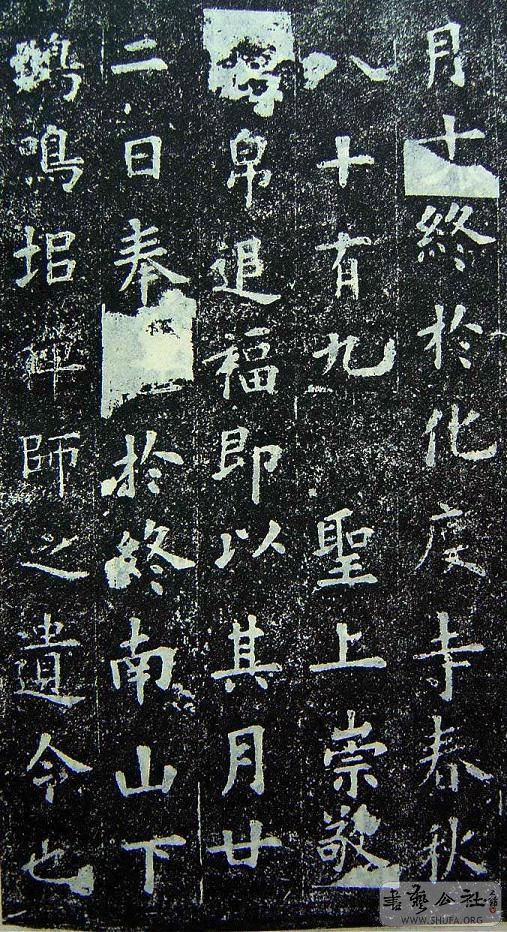 月十終於化度寺春秋
八十有九 聖上崇敬
帛追福即以其月廿
二日奉於終南山下
鳴垖禪師之遺令也
書藝公社
WWW.SHUFA.ORG